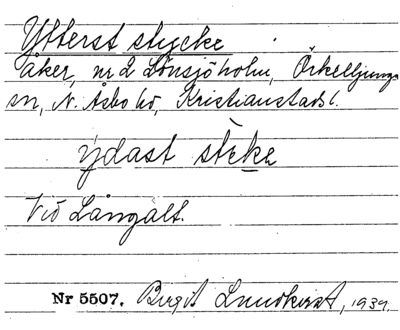 Ytterst stycke
åker, nr 2 Lönsjöholm, Örkelljunga
sn, N. Åsbo hd, Kristianstads l.
ýdast stèke
Vid Långalt.
Nr 5507. Birgit Lundkvist, 1939.